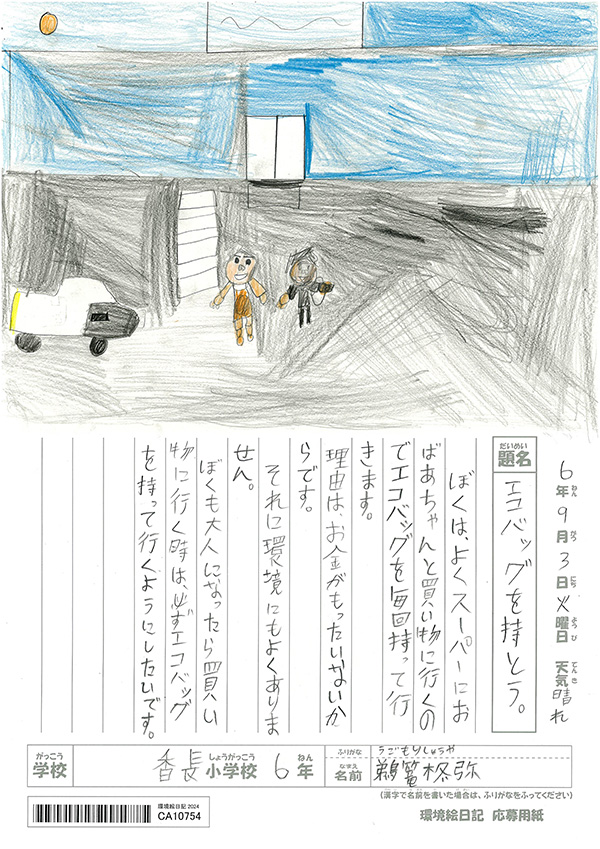 6年9月3日火曜日 天気晴れ
ねん がつ にち ようび てんき
だいめい
題名
エコバッグを持とう。
ぼくは、よくスーパーにお
ばあちゃんと買い物に行くの
でエコバッグを毎回持って行
きます。
理由は、お金がもったいないか
らです。
それに環境にもよくありま
せん。
ぼくも大人になったら買い
物に行く時は、必ずエコバッグ
を持って行くようにしたいです。
がっこう しょうがっこう ねん
学校 香長小学校 6年
ふりがな うごもりしゅうや
なまえ
名前 鵜篭柊弥
(漢字で名前を書いた場合は、ふりがなをふってください)
環境絵日記 2024
CA10754
環境絵日記 応募用紙